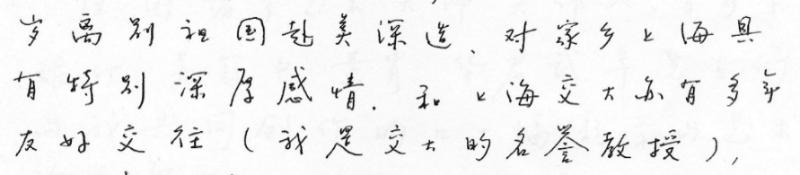 岁离别祖国赴美深造、对家乡上海具
有特别深厚感情. 和上海交大亦有多年
友好交往(我是交大的名誉教授),